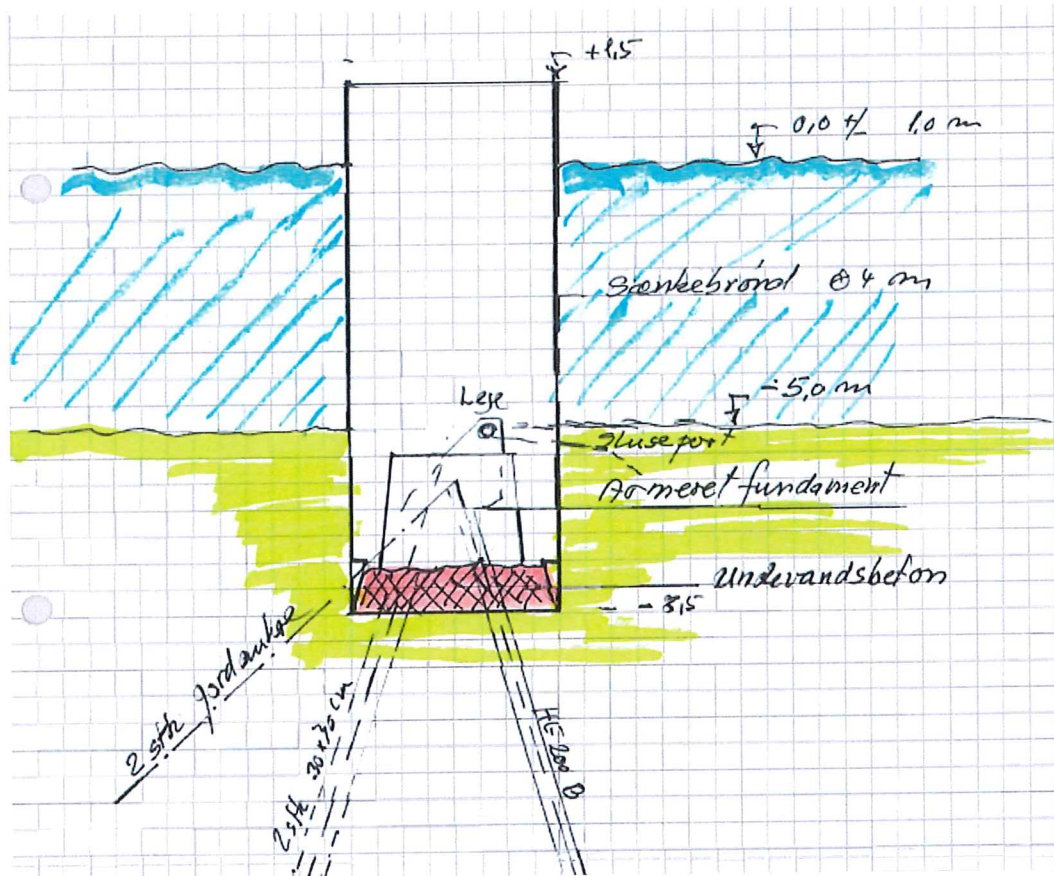 +1,5
0,0 +/- 1,0 m
Sænkebrønd ⌀ 4 m
-5,0 m
Leje
Sluseport
Armeret fundament
Undevandsbeton
- 8,5
2 stk jordankre
2 stk 30x30 cm
HE 200 B